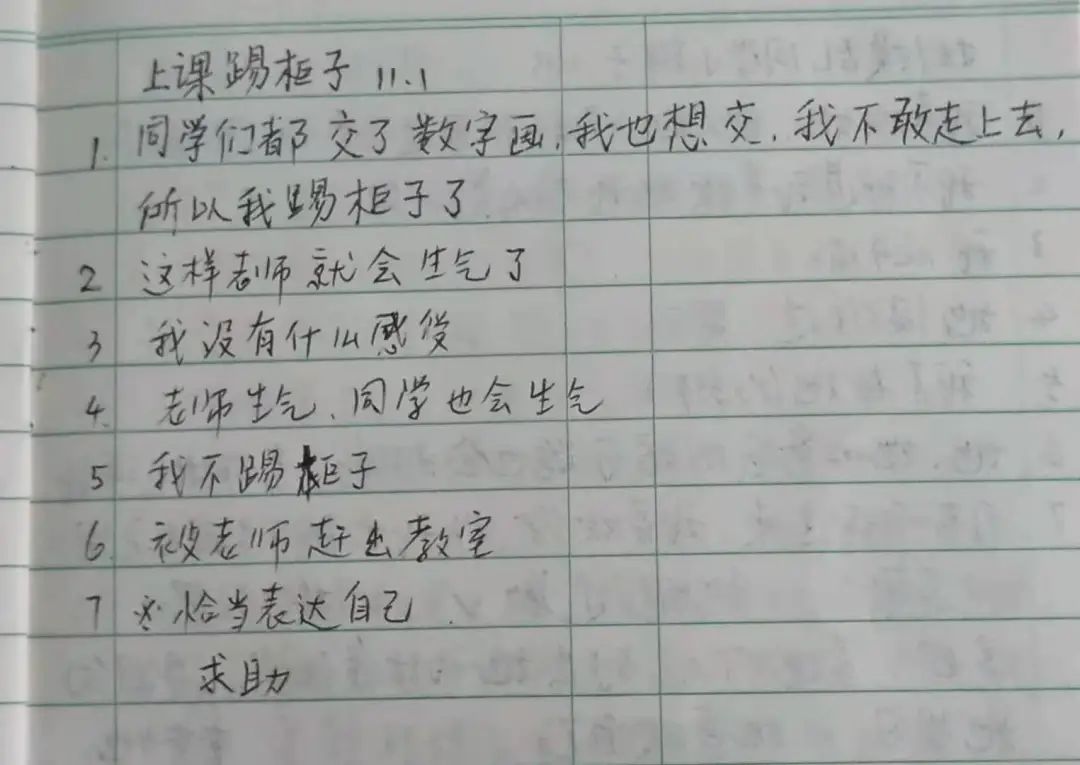 上课踢柜子 11.1
1. 同学们都交了数字画,我也想交,我不敢走上去,
所以我踢柜子了
2 这样老师就会生气了
3 我没有什么感受
4. 老师生气、同学也会生气
5 我不踢柜子
6. 被老师赶出教室
7 恰当表达自己.
求助